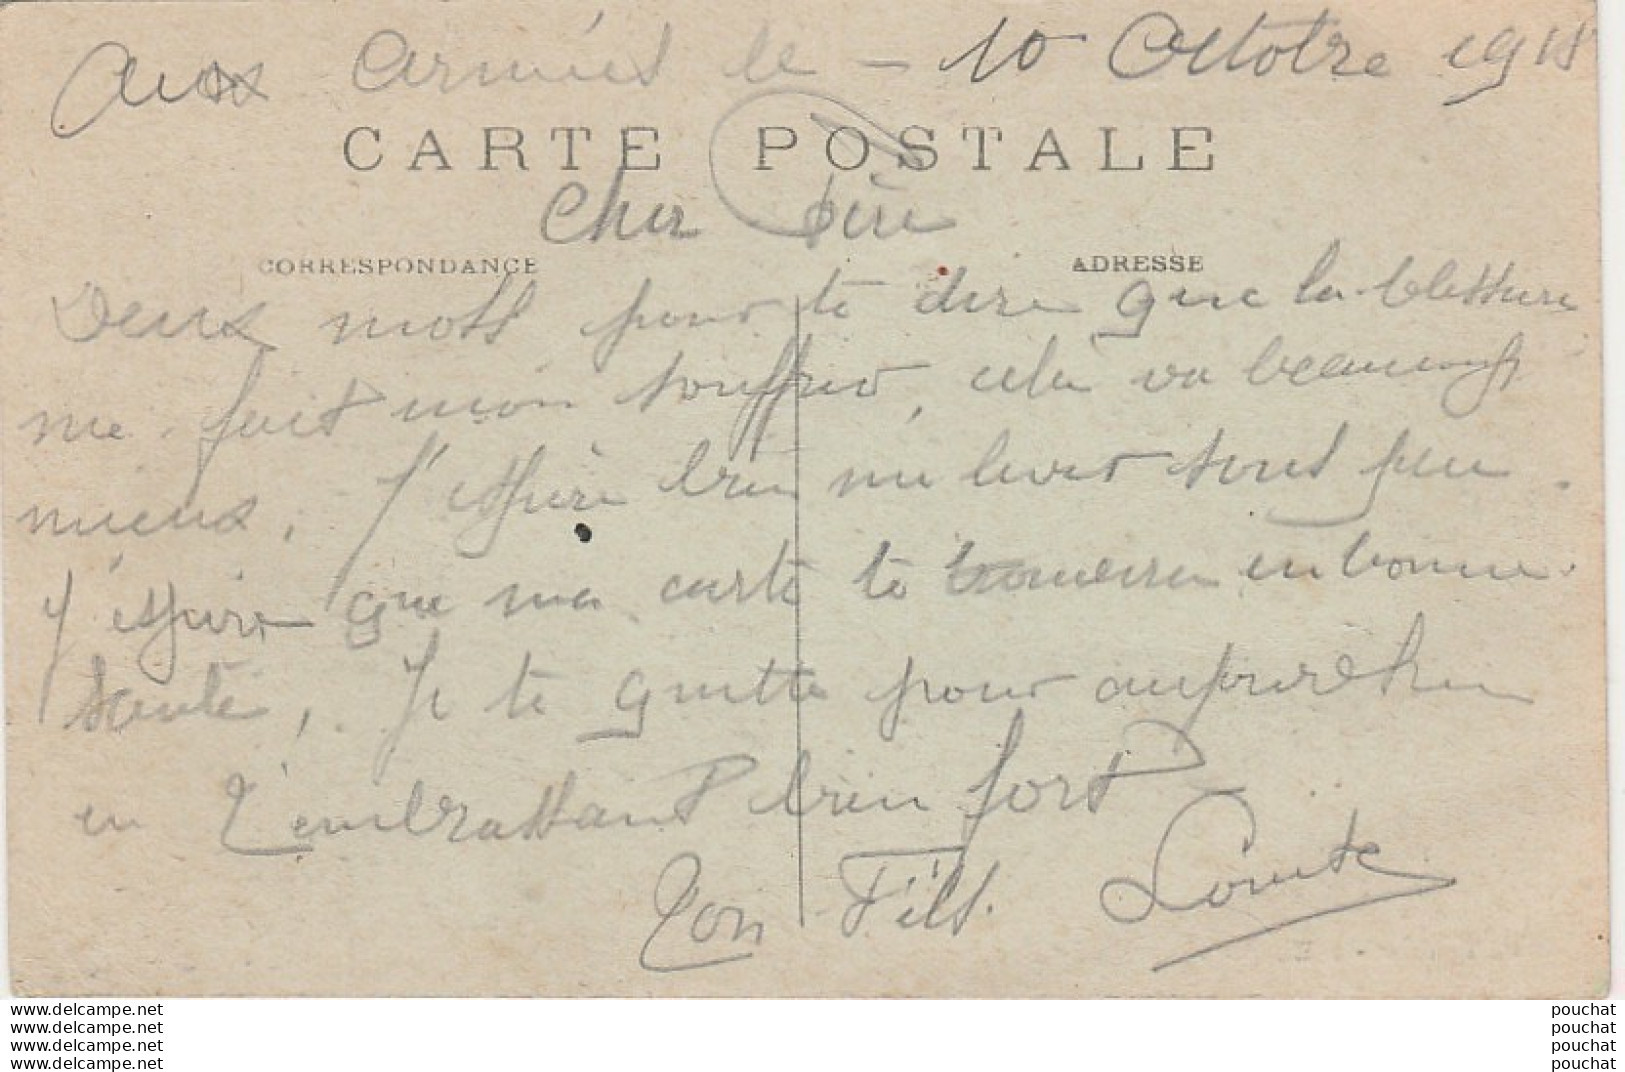 Aux Armées le - 10 Octobre 1915
CARTE POSTALE
Cher Père
CORRESPONDANCE
ADRESSE
Deux mots pour te dire que la blessure
me fait moin souffrir, cela va beaucoup
mieux, J'espère bien me lever sous peu.
J'espère que ma carte te trouvera en bonne
santé, Je te quitte pour aujourd'hui
en t'embrassant bien fort
Ton Fils.
www.delcampe.net
www.delcampe.net
www.delcampe.net
www.delcampe.net
pouchat
pouchat
pouchat
pouchat